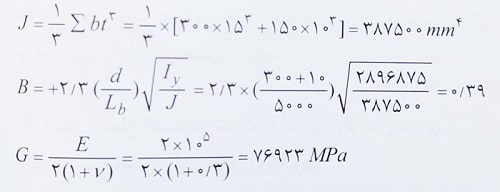 J = ۱/۳ ∑ bt^۳ = ۱/۳ × [۳۰۰ × ۱۵^۳ + ۱۵۰ × ۱۰^۳] = ۳۸۷۵۰۰ mm^۴
B = +۲/۳ (d/L_b) √(I_y/J) = ۲/۳ × (۳۰۰ + ۱۰/۵۰۰۰) √(۲۸۹۶۸۷۵/۳۸۷۵۰۰) = ۰/۳۹
G = E/۲(۱ + ν) = ۲ × ۱۰^۵/۲ × (۱ + ۰/۳) = ۷۶۹۲۳ MPa